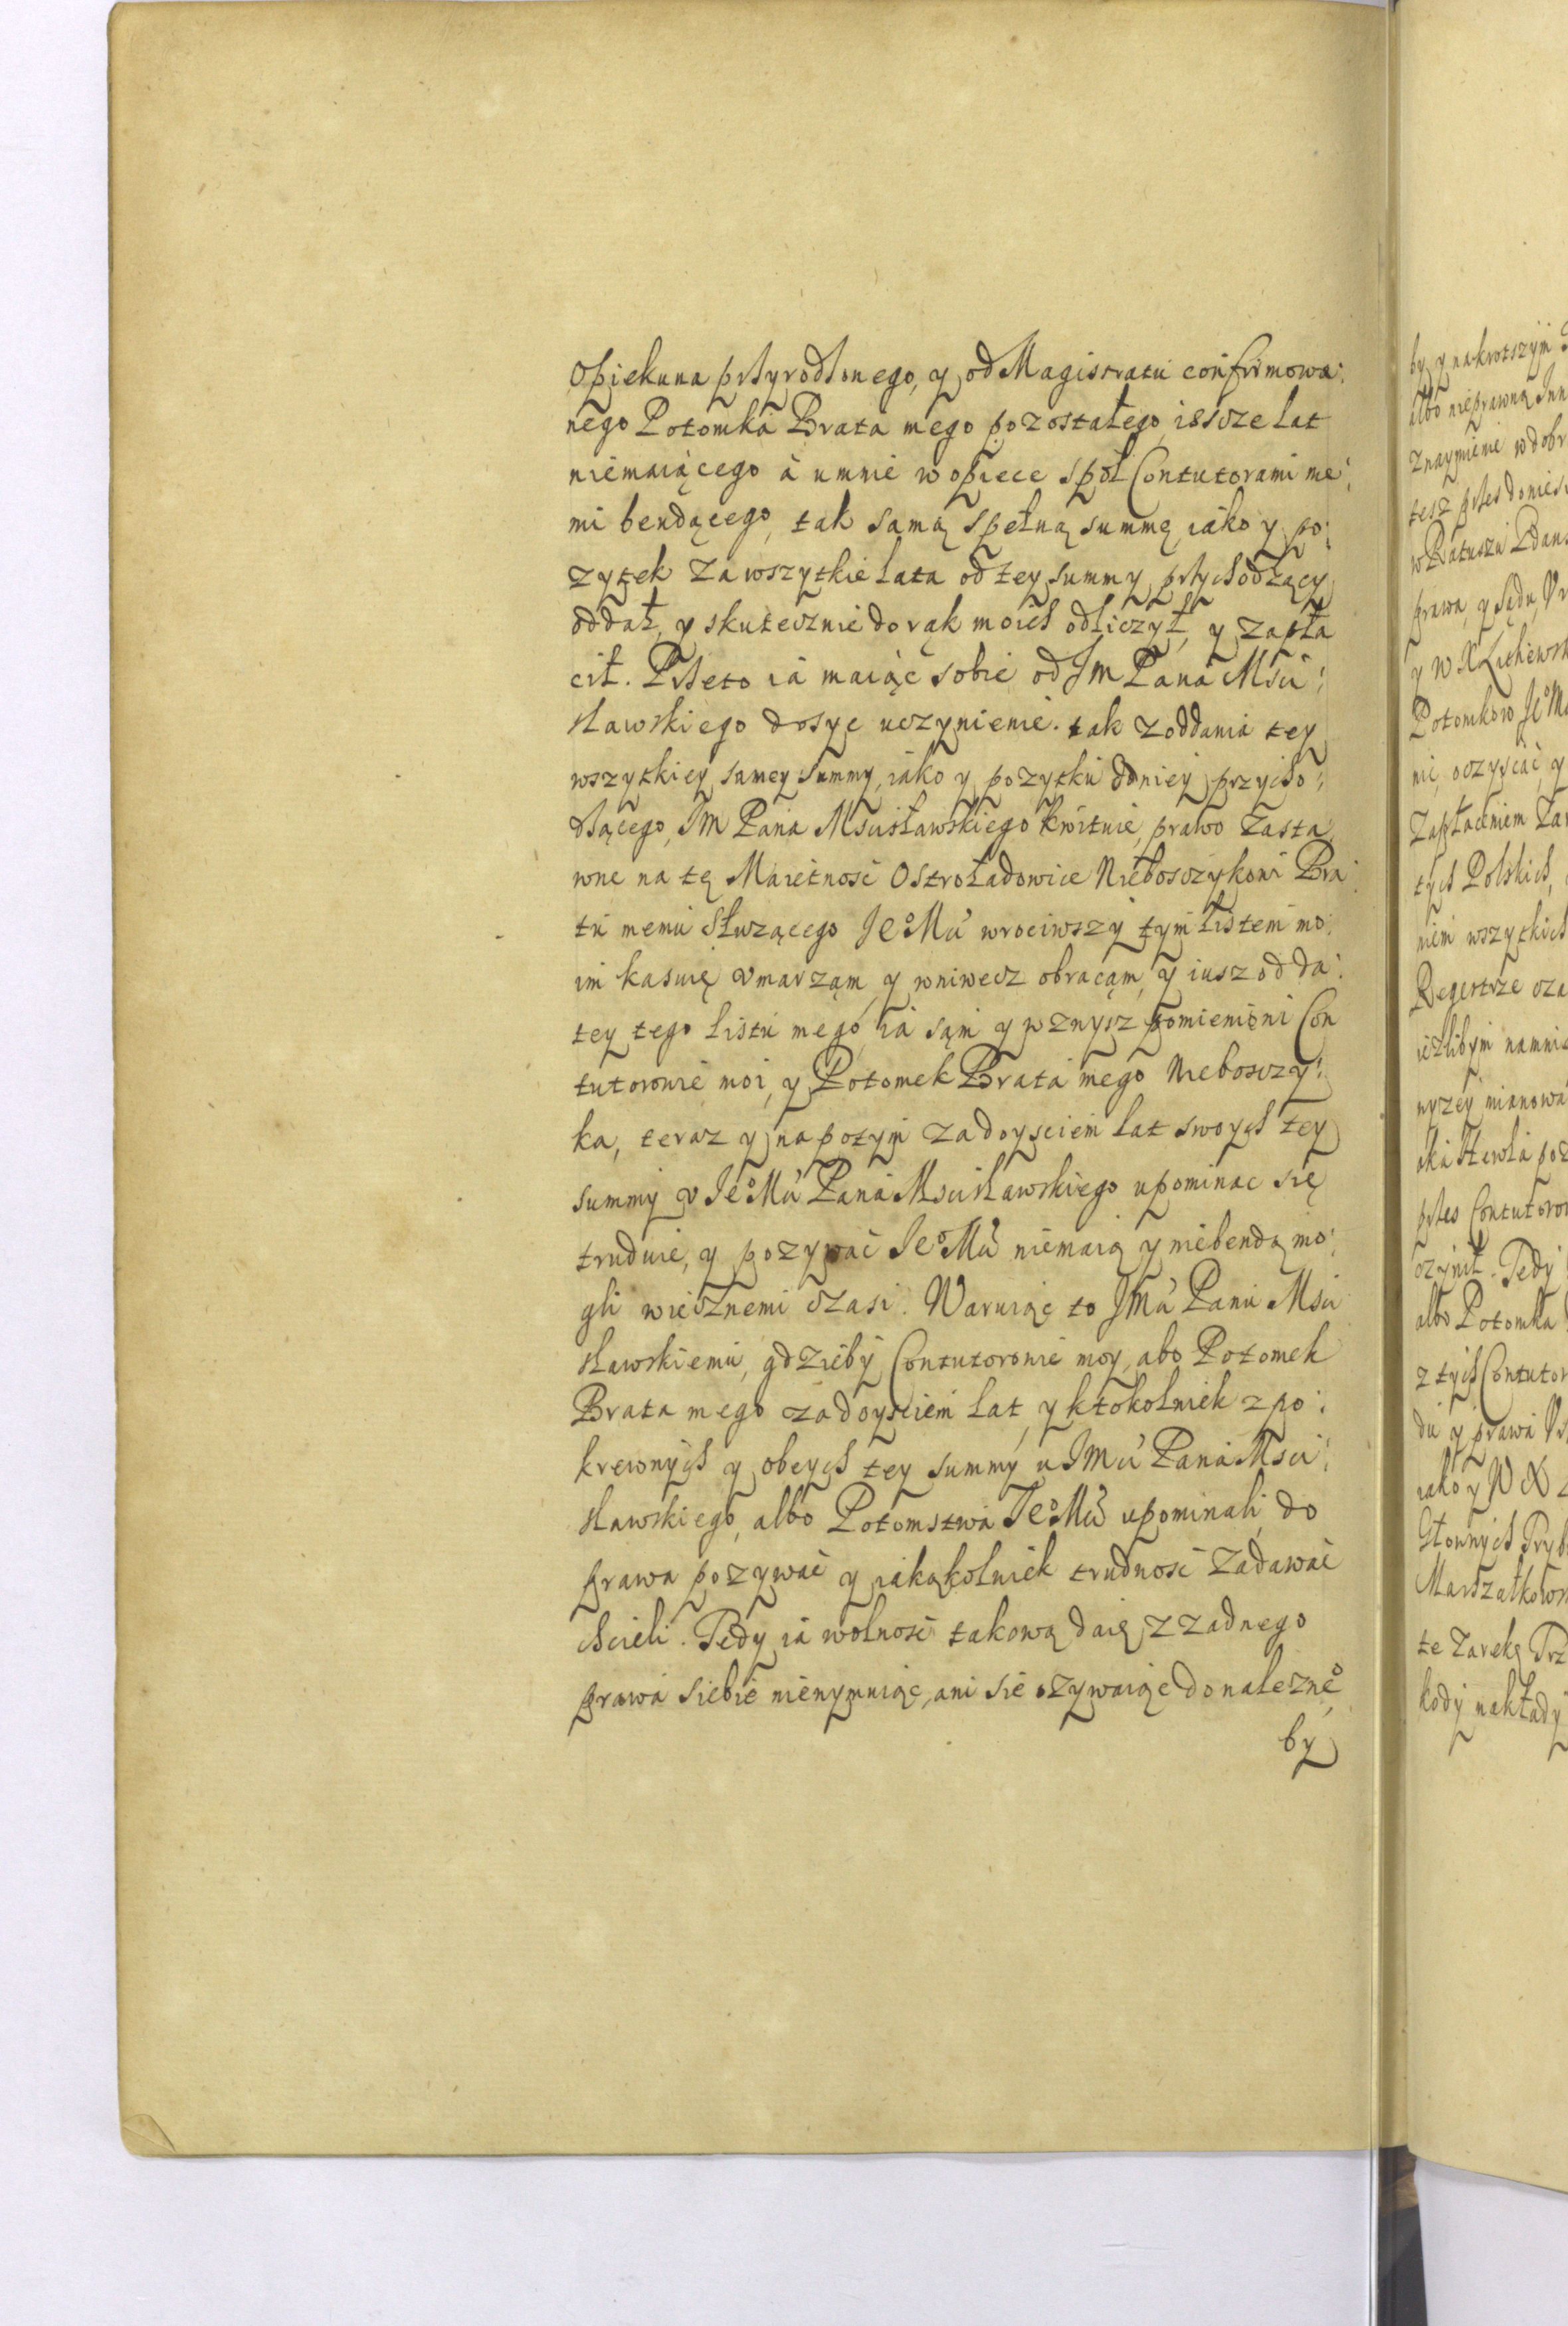 Opiekuna przyrodzonego, y od Magistratu confirmowa:
nego Potomka Brata mego pozostałego, iescze lat
niemaiącego a umnie w opiece społ Contutorami me:
mi bendącego, tak samą spełną summę, iako y po:
zytek za wszytkie lata od tey summy przychodzący
oddał, y skutecznie do rąk moich odliczył, y zapła
cił. Przeto ia maiąc sobie od Jm Pana Msci:
sławskiego dosyc uczynienie. tak z oddania tey
wszytkiey samey summy, iako y pozytku odniey przycho:
dzącego, Jm Pana Mscisławskiego kwituie, prawo zasta
wne na tę Maietnosc Ostroładowice Nieboszczykowi Bra
tu memu słuzącego Je͏̊ Mu͏̊ wrociwszy tym listem mo:
im kasuię umarzam, y wniwecz obracam, y iusz od da:
tey tego listu mego, ia sam y wznysz pomienieni Con
tutorowie moi, y Potomek Brata mego Nieboszczy:
ka, teraz y napotym zadoysciem lat swoych tey
summy v Je͏̊ Mu͏̊ Pana Mscisławskiego upominac się
trudnie, y pozywac Je͏̊ Mu͏̊ niemaią y niebendą mo:
gli wiecznemi czasi. Waruiąc to Jmu͏̊ Panu Msci
sławskiemu, gdzieby Contutorowie moy, abo Potomek
Brata mego zadoysciem lat, y ktokolwiek z po:
krewnych y obcych tey summy u Jmu͏̊ Pana Msci:
sławskiego, albo Potomstwa Je͏̊ Mu͏̊ upominali, do
prawa pozywac y iakąkolwiek trudnosc zadawac
chcieli. Tedy ia wolnosc takową daię z zadnego
prawa siebie nienymuiąc, ani sie ozywaiąc do nalezne͏̊
by
by y nakrotszym
albo nieprawną
znaymienie w dobr
tesz przes donies
w Ratuszu
prawa, y sądu
y w
Potomkow Je͏̊
nie, oczyscac y
Zapłaceniem
tych Polskich,
niem wszytkich
Regestrze
iezlibym namni
wyzey mianowa
przes Contutoro
czynił. Tedy
albo Potomka
z tych Contutor
du y prawa
iako y W X
Głownych Tryb
Marszałkow
te zarekę Trz
kody nakłady